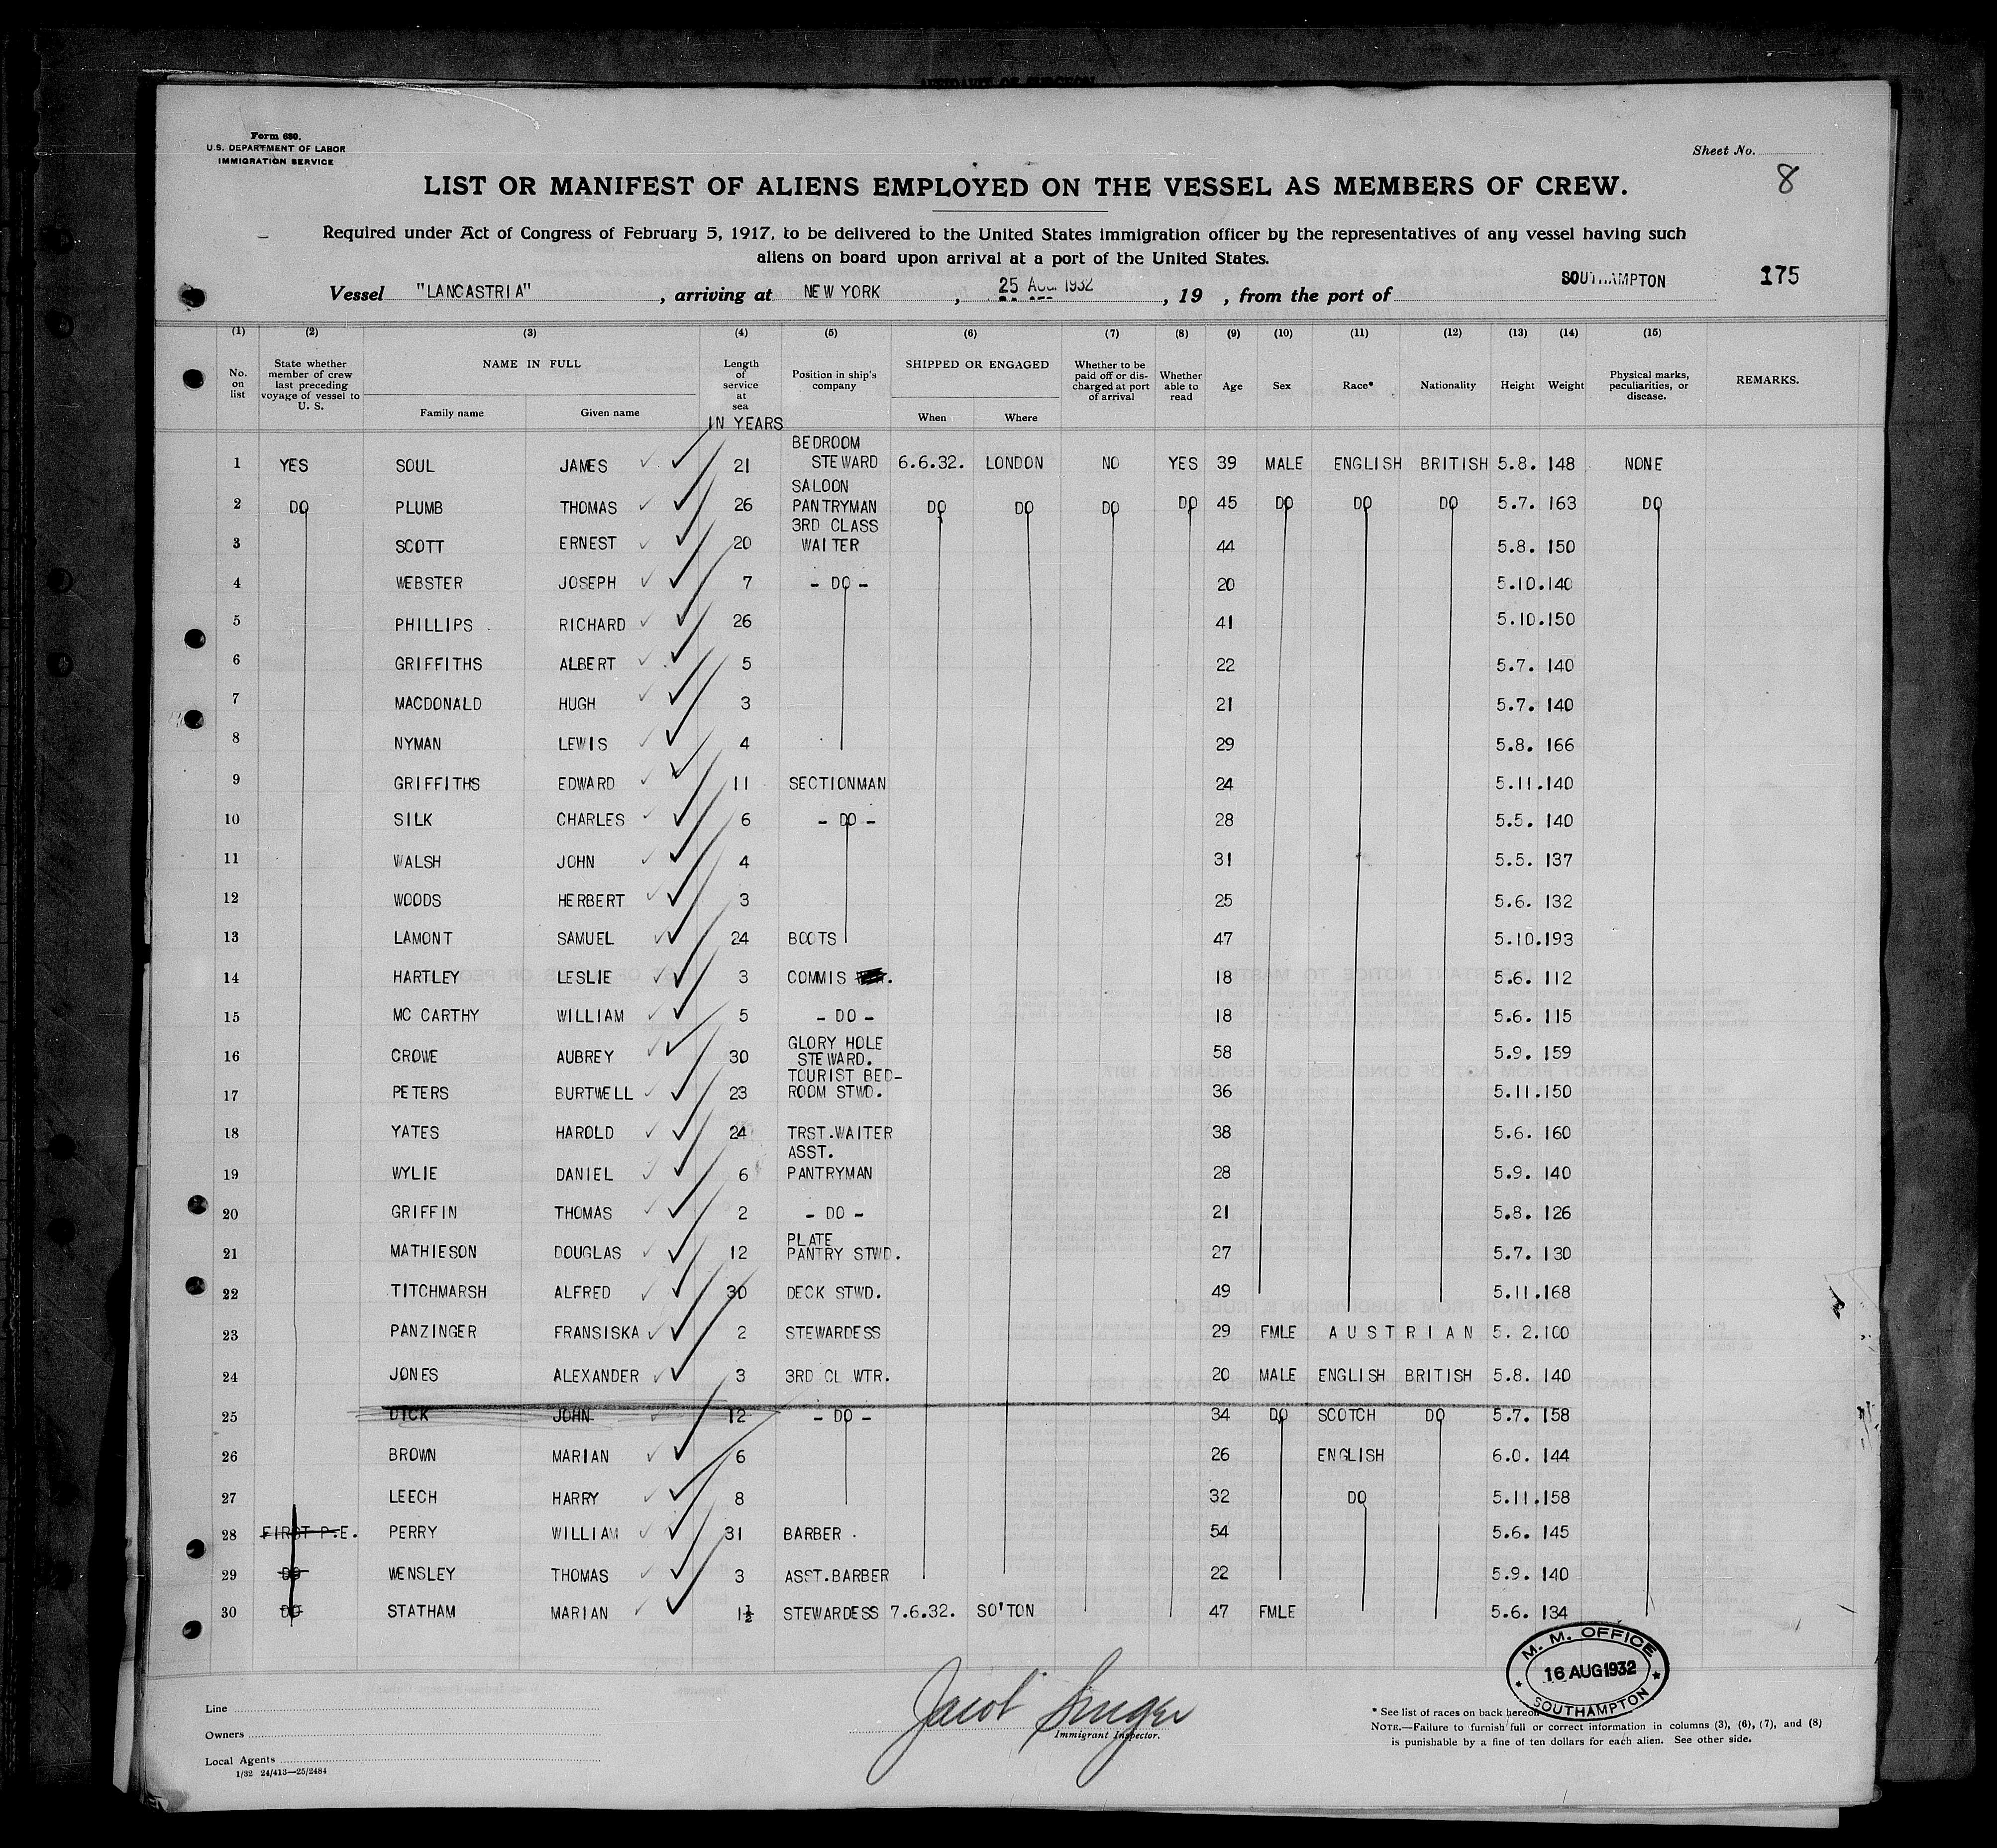 Form 680.
U.S. DEPARTMENT OF LABOR
IMMIGRATION SERVICE
Sheet No. 8
LIST OR MANIFEST OF ALIENS EMPLOYED ON THE VESSEL AS MEMBERS OF CREW.
Required under Act of Congress of February 5, 1917, to be delivered to the United States immigration officer by the representatives of any vessel having such
aliens on board upon arrival at a port of the United States.
Vessel "LANCASTRIA", arriving at NEW YORK, 25 AUG 1932, 19 , from the port of SOUTHAMPTON 175
(1) (2) (3) (4) (5) (6) (7) (8) (9) (10) (11) (12) (13) (14) (15)
No. on list State whether member of crew last preceding voyage of vessel to U. S. NAME IN FULL Family name Given name Length of service at sea IN YEARS Position in ship's company SHIPPED OR ENGAGED When Where Whether to be paid off or discharged at port of arrival Whether able to read Age Sex Race* Nationality Height Weight Physical marks, peculiarities, or disease. REMARKS.
1 YES SOUL JAMES 21 BEDROOM STEWARD 6.6.32. LONDON NO YES 39 MALE ENGLISH BRITISH 5.8. 148 NONE
2 DO PLUMB THOMAS 26 SALOON PANTRYMAN DO DO DO DO 45 DO DO DO 5.7. 163 DO
3 SCOTT ERNEST 20 3RD CLASS WAITER 44 5.8. 150
4 WEBSTER JOSEPH 7 - DO - 20 5.10. 140
5 PHILLIPS RICHARD 26 41 5.10. 150
6 GRIFFITHS ALBERT 5 22 5.7. 140
7 MACDONALD HUGH 3 21 5.7. 140
8 NYMAN LEWIS 4 29 5.8. 166
9 GRIFFITHS EDWARD 11 SECTIONMAN 24 5.11. 140
10 SILK CHARLES 6 - DO - 28 5.5. 140
11 WALSH JOHN 4 31 5.5. 137
12 WOODS HERBERT 3 25 5.6. 132
13 LAMONT SAMUEL 24 BOOTS 47 5.10. 193
14 HARTLEY LESLIE 3 COMMIS 18 5.6. 112
15 MC CARTHY WILLIAM 5 - DO - 18 5.6. 115
16 CROWE AUBREY 30 GLORY HOLE STEWARD. 58 5.9. 159
17 PETERS BURTWELL 23 TOURIST BED-ROOM STWD. 36 5.11. 150
18 YATES HAROLD 24 TRST.WAITER 38 5.6. 160
19 WYLIE DANIEL 6 ASST. PANTRYMAN 28 5.9. 140
20 GRIFFIN THOMAS 2 - DO - 21 5.8. 126
21 MATHIESON DOUGLAS 12 PLATE PANTRY STWD. 27 5.7. 130
22 TITCHMARSH ALFRED 30 DECK STWD. 49 5.11. 168
23 PANZINGER FRANSISKA 2 STEWARDESS 29 FMLE AUSTRIAN 5. 2. 100
24 JONES ALEXANDER 3 3RD CL WTR. 20 MALE ENGLISH BRITISH 5.8. 140
25 DICK JOHN 12 - DO - 34 DO SCOTCH DO 5.7. 158
26 BROWN MARIAN 6 26 ENGLISH 6.0. 144
27 LEECH HARRY 8 32 DO 5.11. 158
28 FIRST P.E. PERRY WILLIAM 31 BARBER . 54 5.6. 145
29 DO WENSLEY THOMAS 3 ASST.BARBER 22 5.9. 140
30 DO STATHAM MARIAN 1½ STEWARDESS 7.6.32. SO'TON 47 FMLE 5.6. 134
M. M. OFFICE
16 AUG 1932
SOUTHAMPTON
Jacob Singer
Immigrant Inspector.
Line
Owners
Local Agents
1/32 24/413—25/2484
* See list of races on back hereon
NOTE.—Failure to furnish full or correct information in columns (3), (6), (7), and (8)
is punishable by a fine of ten dollars for each alien. See other side.